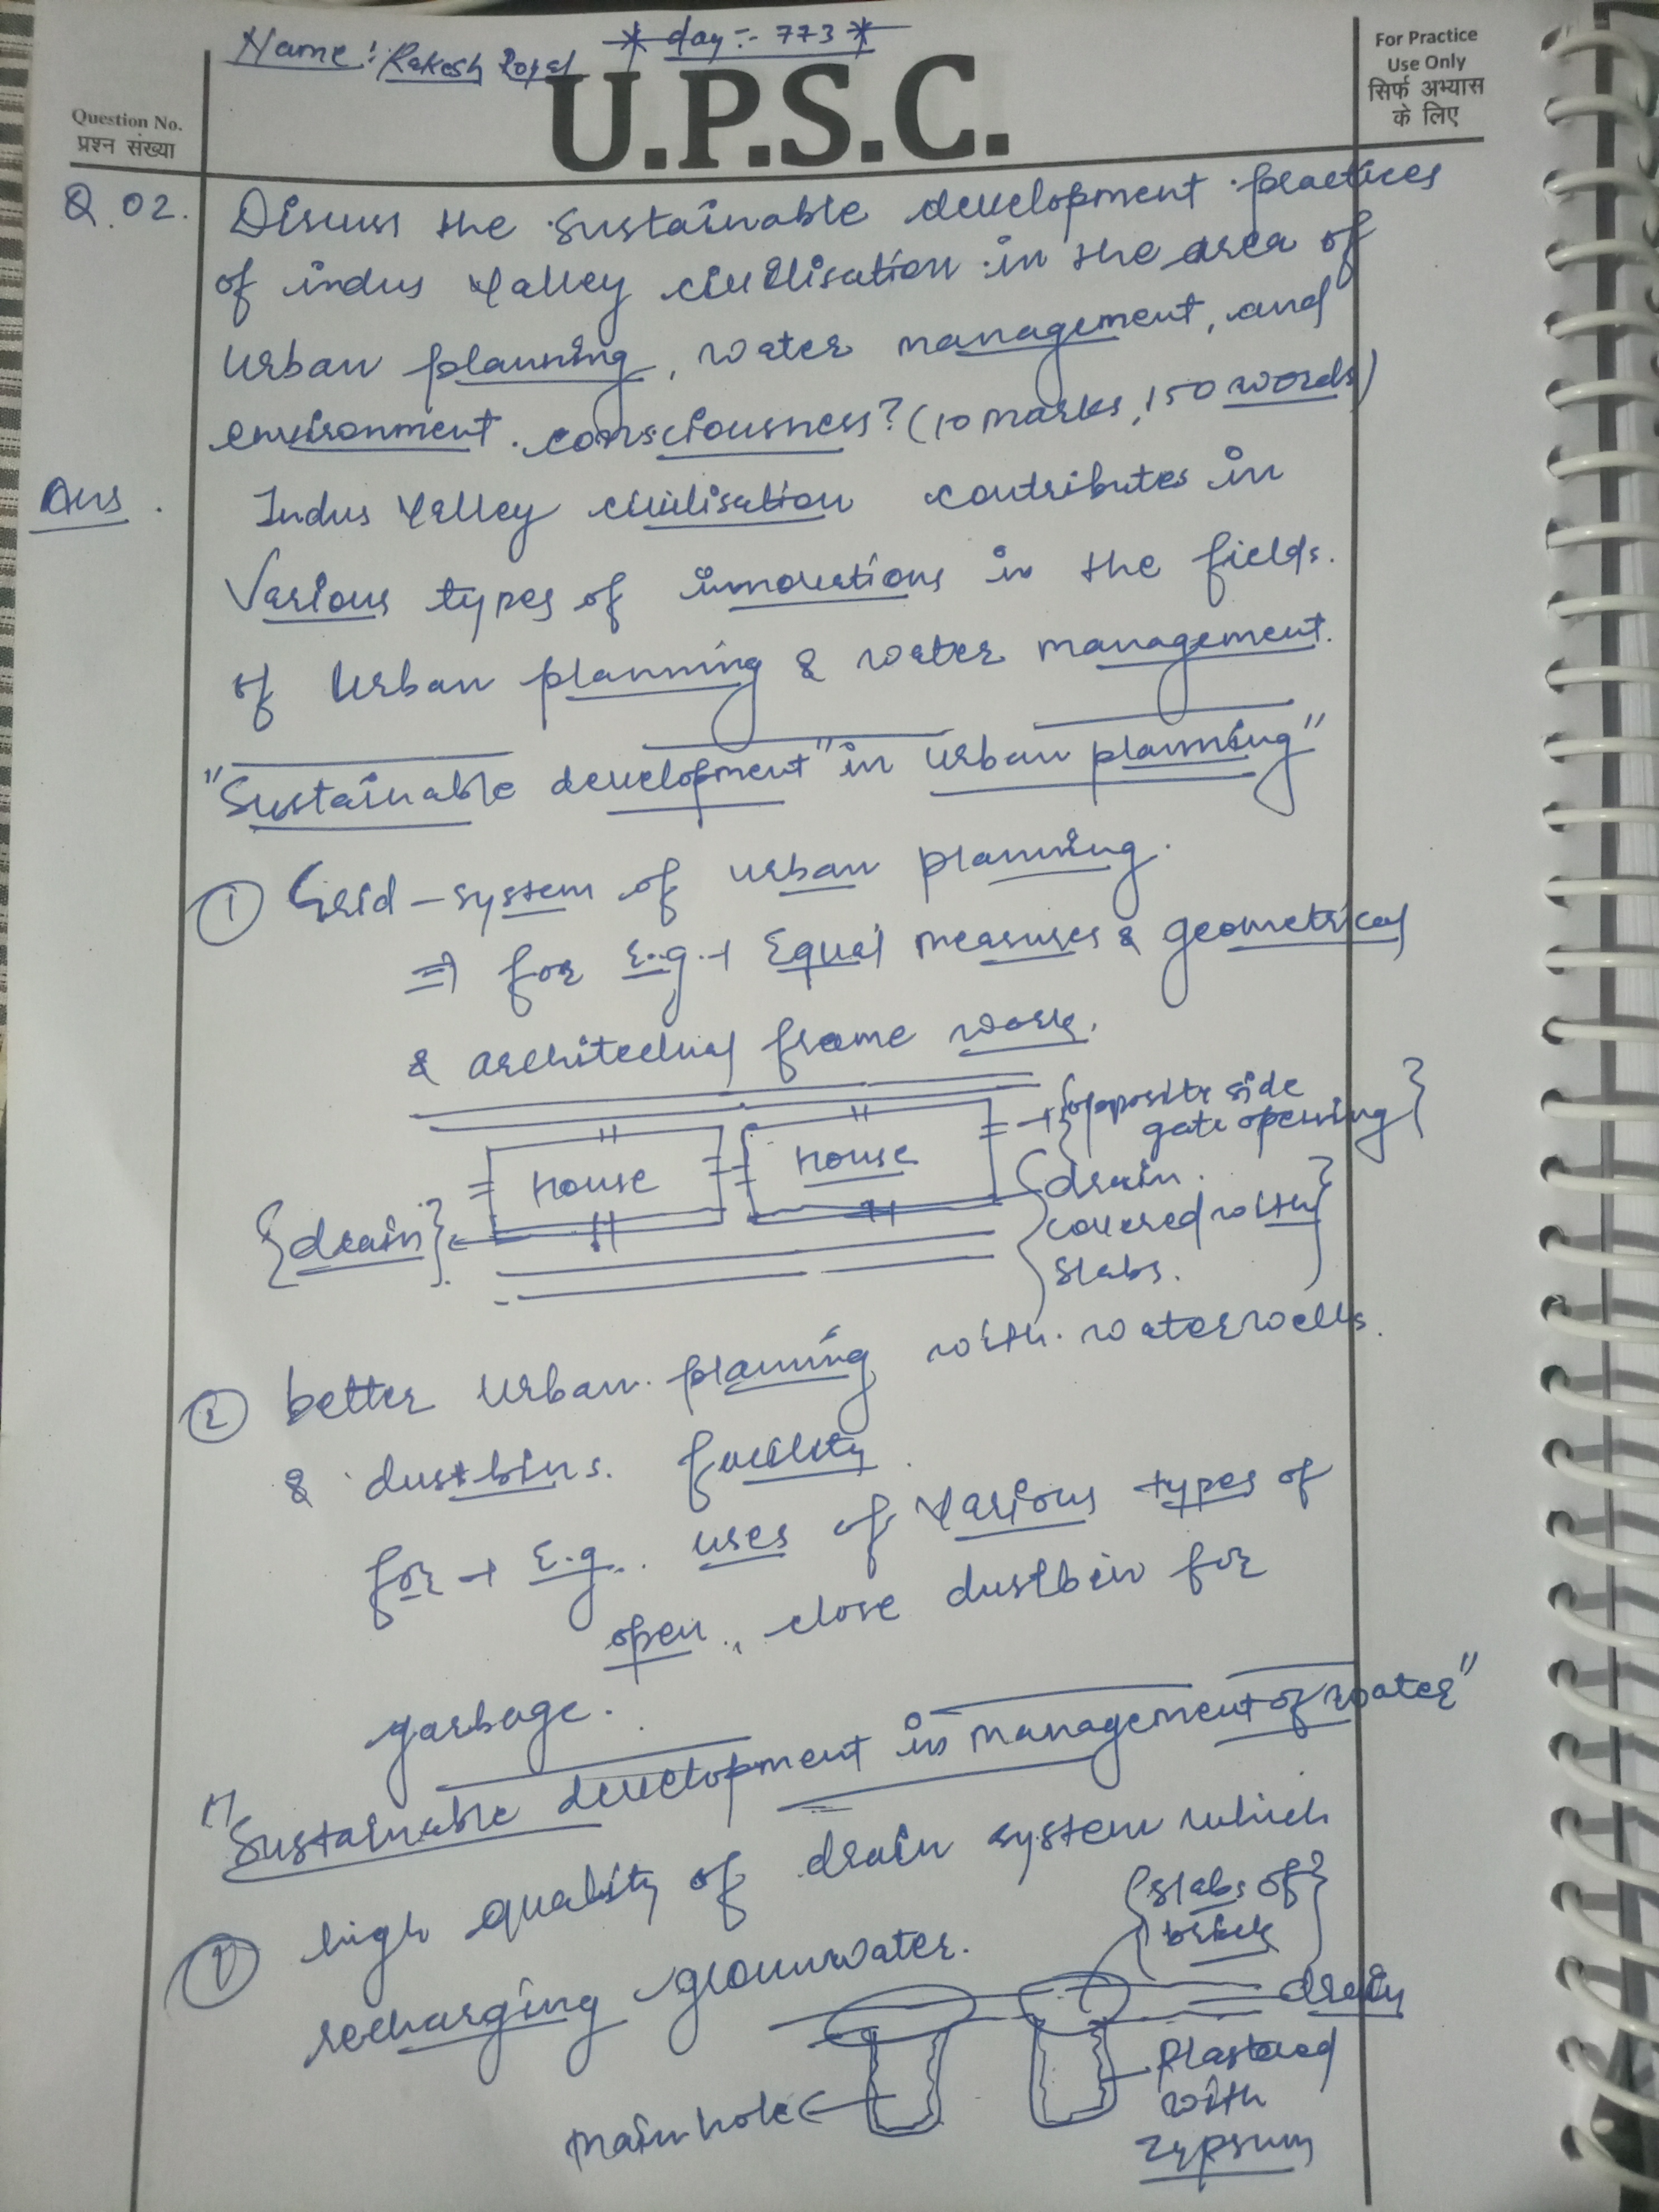 Name: Rakesh Royal * day :- 773 *
U.P.S.C.
For Practice
Use Only
सिर्फ अभ्यास
के लिए
Question No.
प्रश्न संख्या
Q.02. Discuss the sustainable development practices
of indus Valley civilisation in the area of
Urban planning, water management, and
environment consciousness? (10 marks, 150 words)
Ans. Indus Valley civilisation contributes in
Various types of innovations in the fields.
of Urban planning & water management.
"Sustainable development" in Urban planning"
① Grid-system of urban planning.
⇒ for E.g. → Equal measures & geometrical
& architectual frame work.
{opposite side
gate opening}
house
house
{drain}
{drain
covered with
slabs.}
② better Urban planning with water wells
& dustbins. facility.
for → E.g.. uses of Various types of
open, close dustbin for
garbage.
"Sustainable development in management of water"
① high quality of drain system which
recharging grounwater.
{slabs of
brick}
drain
mainhole
Plastered
with
zypsum